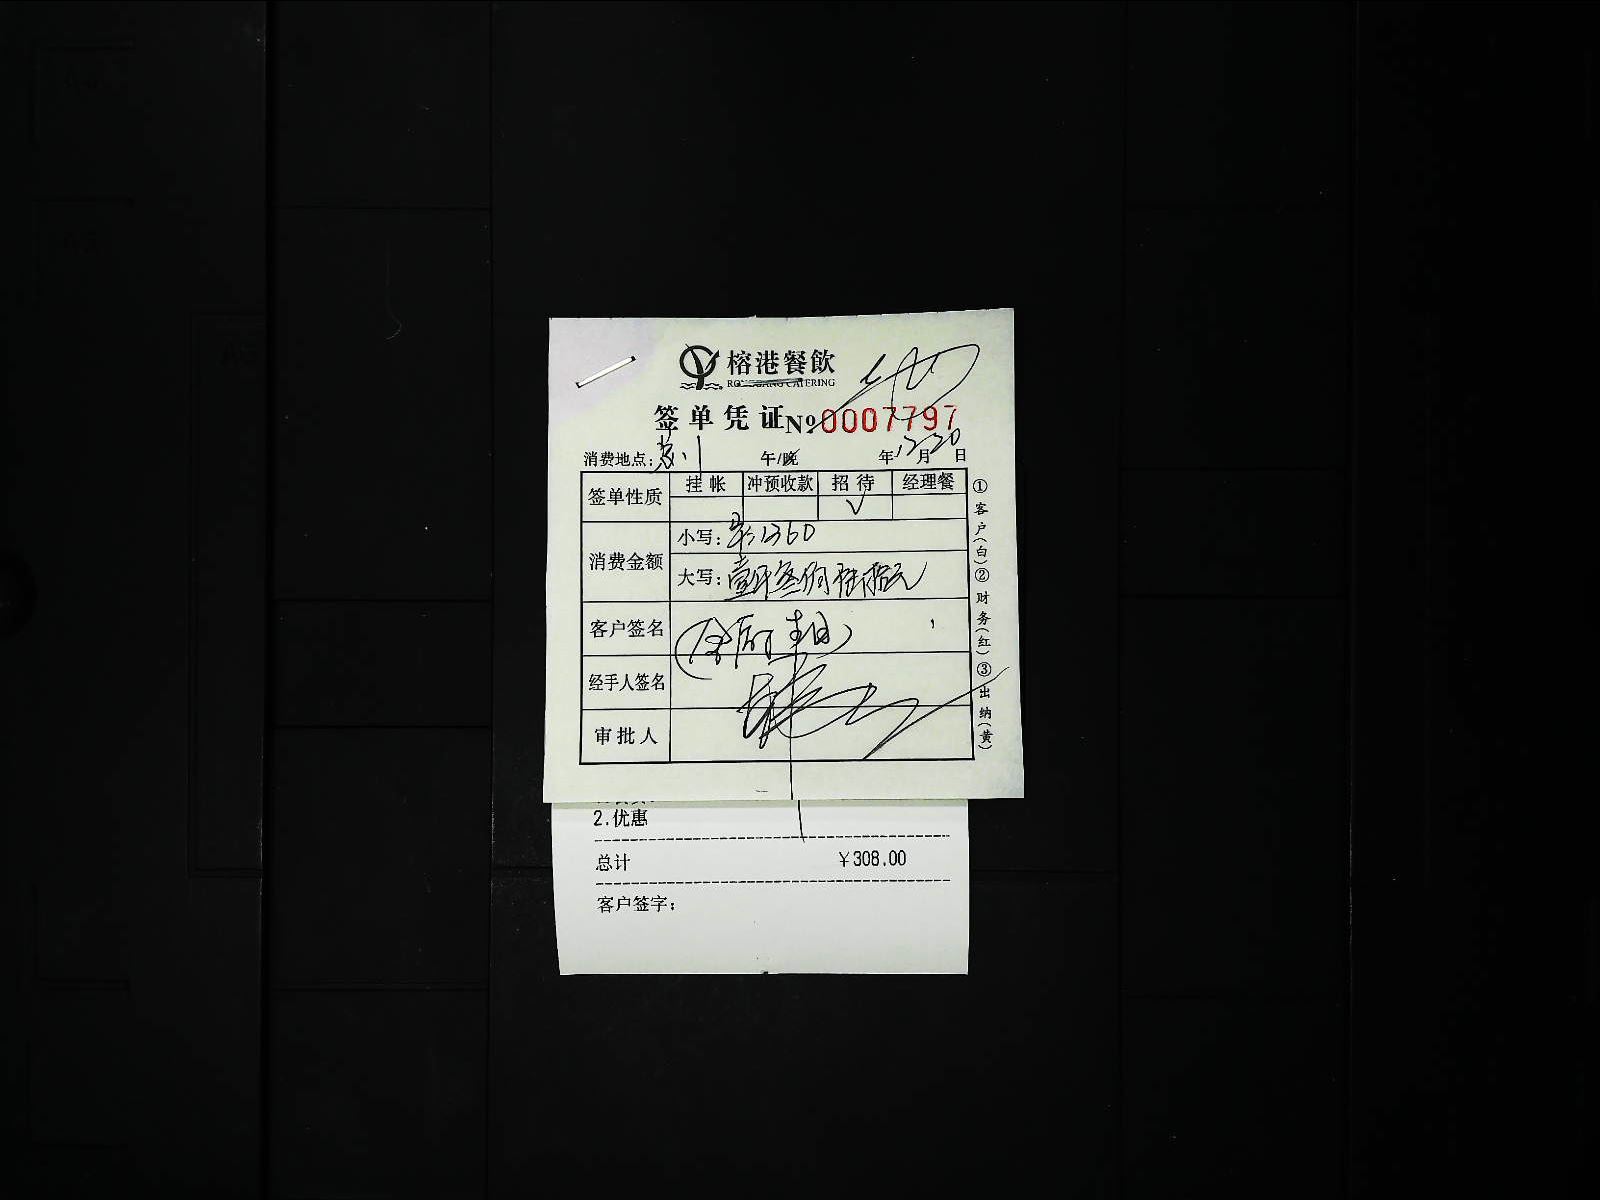 榕港餐飲
RONGGANG CATERING
签单凭证 № 0007797
消费地点： 午/晚 年12月20日
签单性质 挂帐 冲预收款 招待 经理餐
√
消费金额 小写：1360
大写：壹仟叁佰陆拾元
客户签名
经手人签名
审批人
①客户（白）②财务（红）③出纳（黄）
2.优惠
总计 ￥308.00
客户签字：